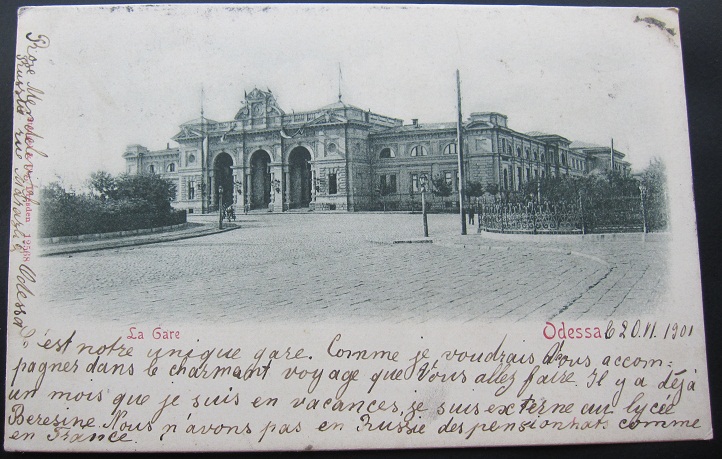 La Gare
Odessa
le 20.VI. 1901
C'est notre unique gare. Comme je voudrais vous accom=
pagner dans le charmant voyage que Vous allez faire. Il y a déjà
un mois que je suis en vacances, je suis externe au lycée
Beresine. Nous n'avons pas en Russie des pensionnats comme
en France.
Rose Mendelevitz
Russie rue Odessa
12568